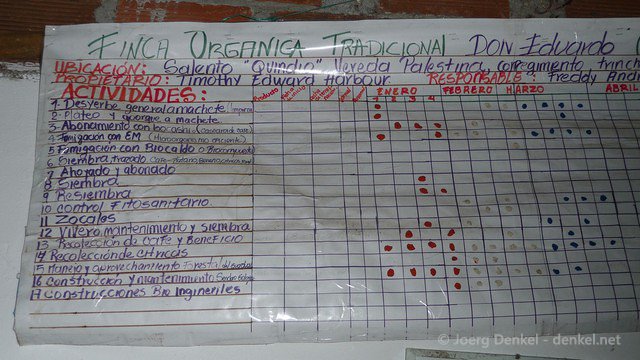 FINCA ORGANICA TRADICIONAL DON EDUARDO
UBICACIÓN: Salento "Quindio" Vereda Palestina, corregimiento
PROPIETARIO: Timothy Edward Harbour RESPONSABLE: Freddy
ACTIVIDADES: ENERO FEBRERO MARZO ABRIL
1 2 3 4
1. Desyerbe general a machete
2. Plateo y aporque a machete
3. Abonamiento con bocashi
4 Fumigación con EM
5 Fumigación con Biocaldo
6 Siembra, trazado
7 Ahoyado y abonado
8 Siembra
9 Resiembra
10 Control Fitosanitario
11 Zocalos
12 Vivero, mantenimiento y siembra
13 Recolección de café y Beneficio
14 Recolección de citricos
15 Manejo y aprovechamiento forestal
16 Construcción y mantenimiento
17 Construcciones Bio Ingineriles
© Joerg Denkel - denkel.net